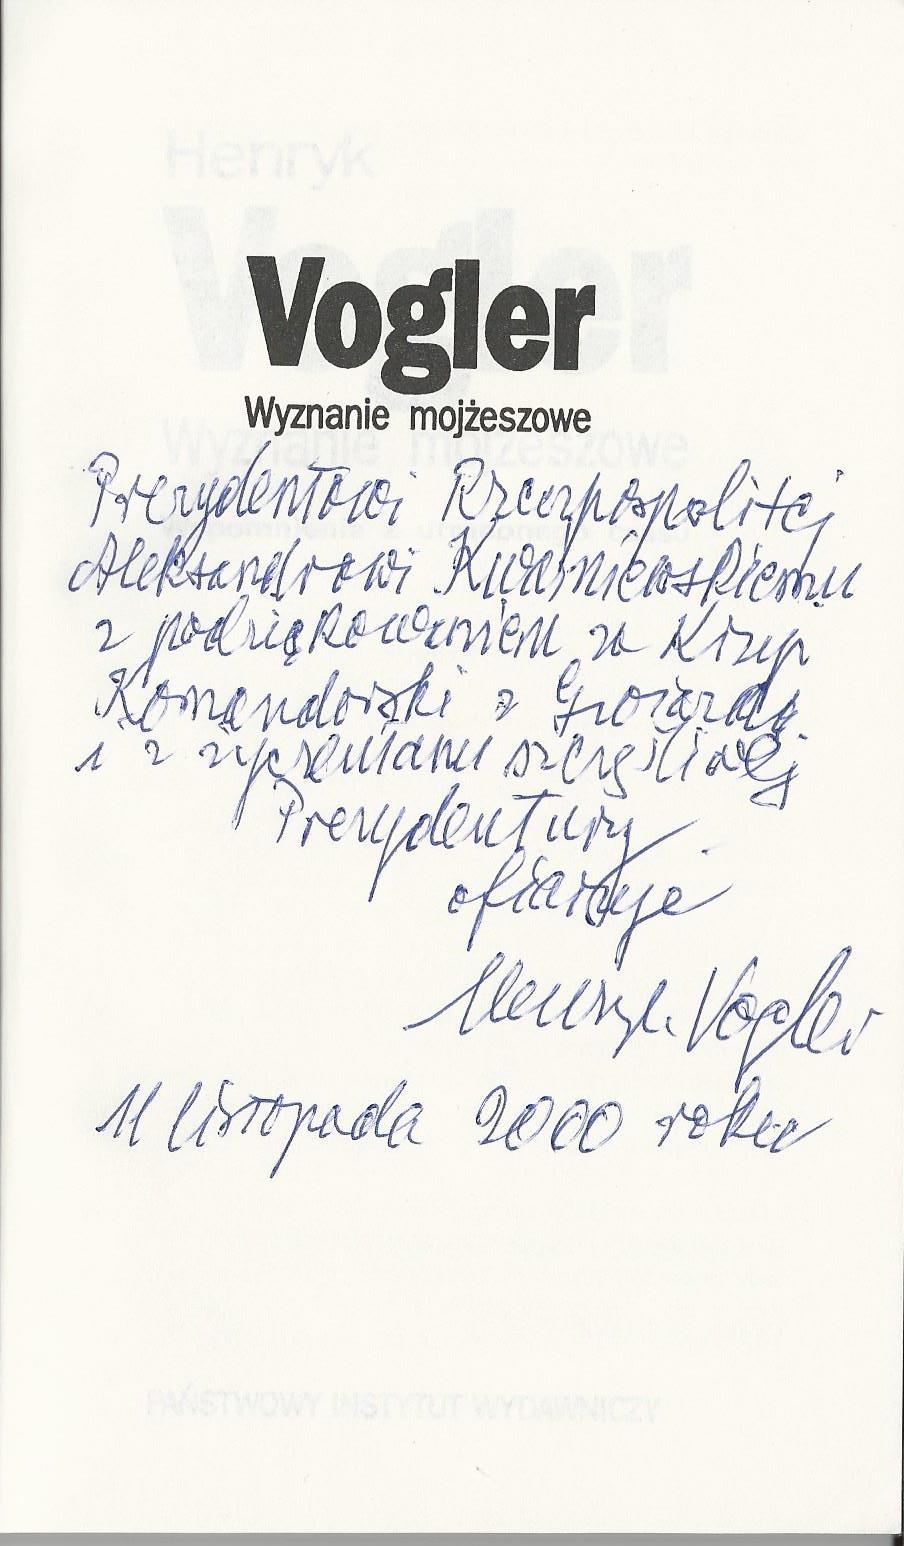 Henryk
Vogler
Wyznanie mojżeszowe
Prezydentowi Rzeczypospolitej
Aleksandrowi Kwaśniewskiemu
z podziękowaniem za Krzyż
Komandorski z Gwiazdą
i z życzeniami szczęśliwej
Prezydentury
ofiaruje
Henryk Vogler
11 listopada 2000 roku
PAŃSTWOWY INSTYTUT WYDAWNICZY